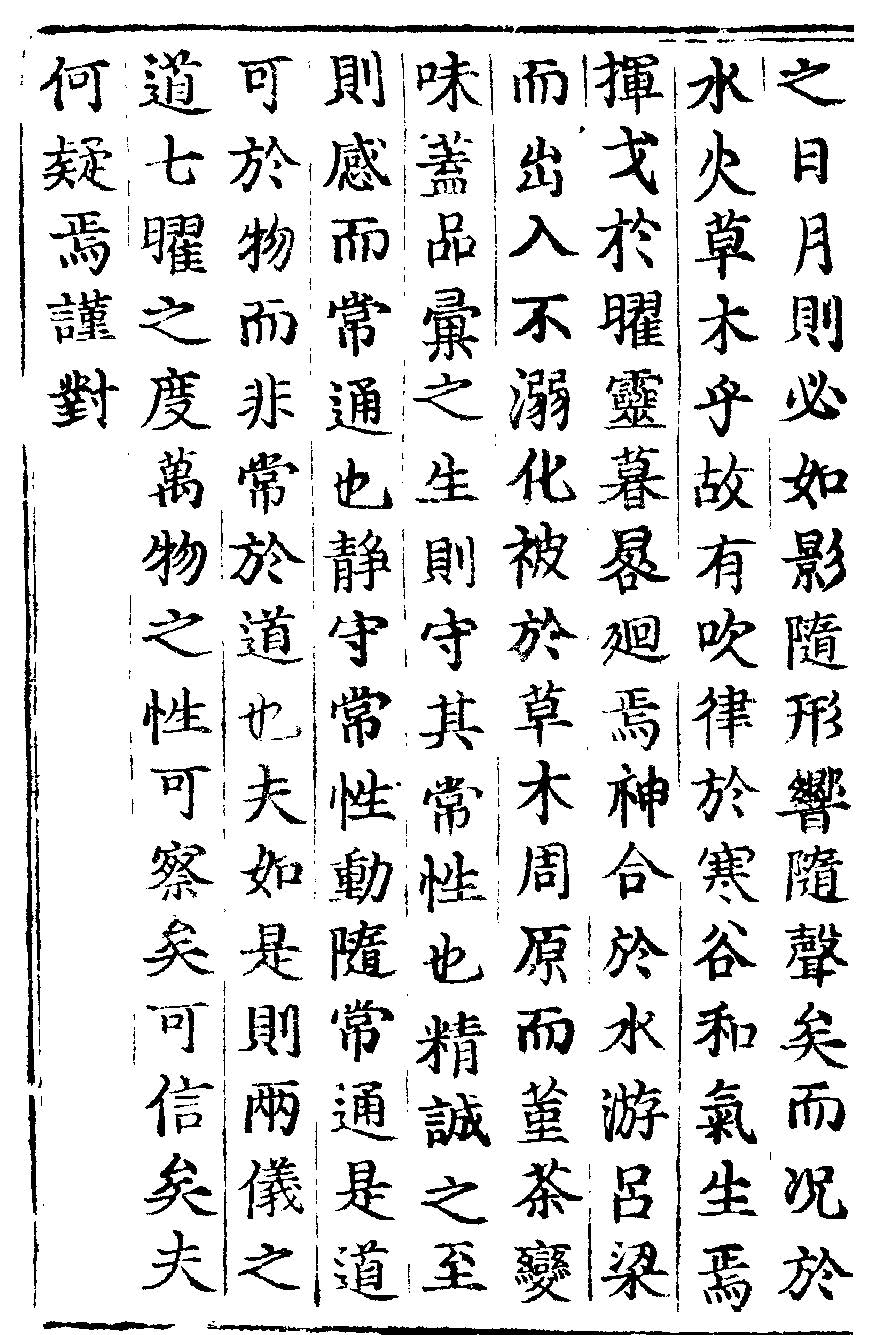 之日月則必如影隨形響隨聲矣而况於
水火草木乎故有吹律於寒谷和氣生焉
揮戈於曜靈暮晷廻焉神合於水游呂梁
而出入不溺化被於草木周原而堇荼變
味蓋品彙之生則守其常性也精誠之至
則感而常通也静守常性動隨常通是道
可於物而非常於道也夫如是則兩儀之
道七曜之度萬物之性可察矣可信矣夫
何疑焉謹對